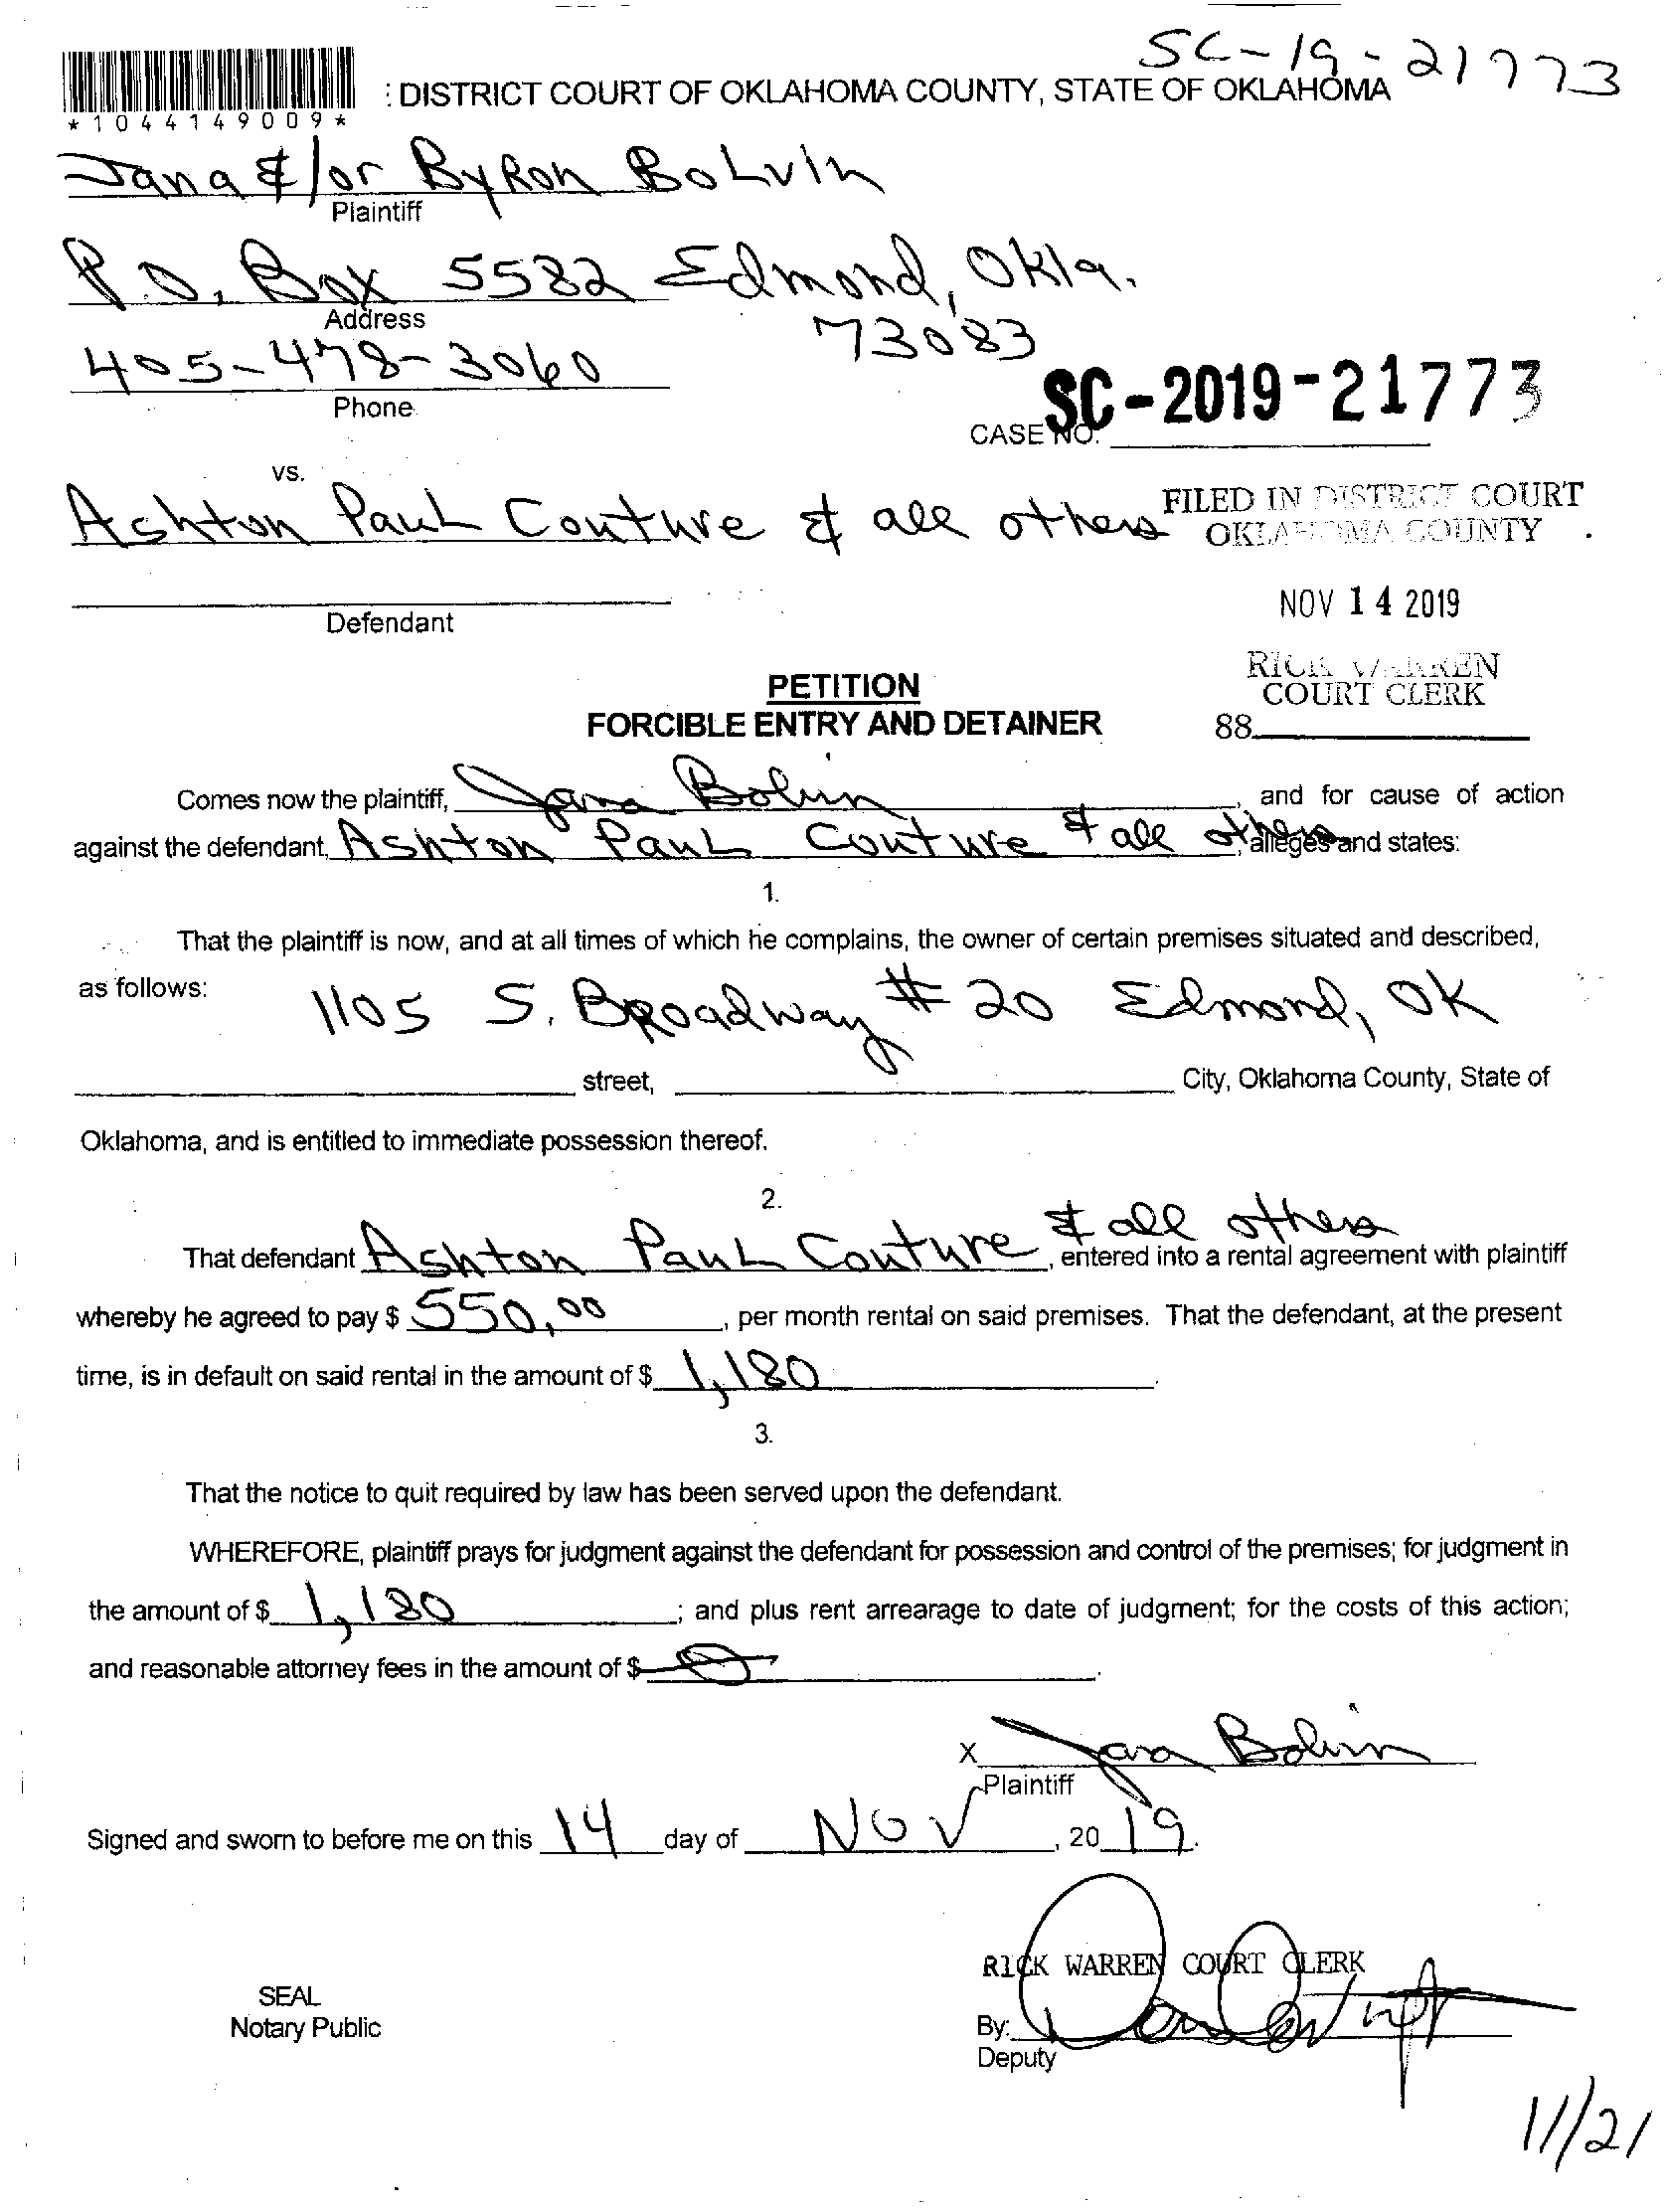 SC-19-21773
: DISTRICT COURT OF OKLAHOMA COUNTY, STATE OF OKLAHOMA
*1044149009*
Jana &/or Byron Bolvin
Plaintiff
P.O. Box 5582 Edmond, Okla.
Address
73083
405-478-3060
Phone
SC-2019-21773
CASE NO.
vs.
Ashton Paul Couture & all others
FILED IN DISTRICT COURT
OKLAHOMA COUNTY
Defendant
NOV 14 2019
RICK WARREN
COURT CLERK
88
PETITION
FORCIBLE ENTRY AND DETAINER
Comes now the plaintiff, Jana Bolvin, and for cause of action
against the defendant, Ashton Paul Couture & all others, alleges and states:
1.
That the plaintiff is now, and at all times of which he complains, the owner of certain premises situated and described,
as follows: 1105 S. Broadway #20 Edmond, OK
street, City, Oklahoma County, State of
Oklahoma, and is entitled to immediate possession thereof.
2.
That defendant Ashton Paul Couture & all others, entered into a rental agreement with plaintiff
whereby he agreed to pay $ 550.00, per month rental on said premises. That the defendant, at the present
time, is in default on said rental in the amount of $ 1,180.
3.
That the notice to quit required by law has been served upon the defendant.
WHEREFORE, plaintiff prays for judgment against the defendant for possession and control of the premises; for judgment in
the amount of $ 1,180; and plus rent arrearage to date of judgment; for the costs of this action;
and reasonable attorney fees in the amount of $ 0.
X Jana Bolvin
Plaintiff
Signed and sworn to before me on this 14 day of NOV, 20 19.
RICK WARREN COURT CLERK
SEAL
Notary Public
By:
Deputy
11/21